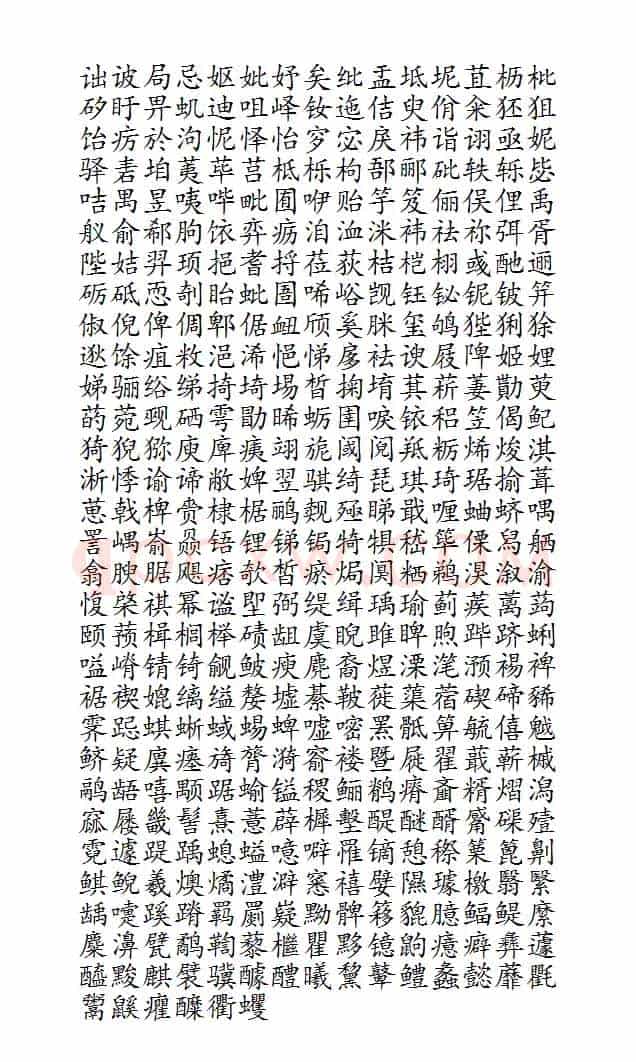 诎诐局忌妪妣妤矣纰盂坻坭苴枥枇
矽盱畀虮迪咀峄钕迤佶臾佾籴狉狙
饴疠於泃怩怿怡穸宓戾祎诣诩亟妮
驿砉垍荑荜莒柢栎枸郚郦砒轶轹毖
咭禺昱咦哔毗囿咿贻竽笈俪俣俚禹
舣俞郗朐饻弈疬洎洫洣祎祛祢弭胥
陛姞羿顼挹耆捋莅荻桔桤栩彧酏逦
砺砥恧剞眙蚍圄唏峪觊钰铋铌铍笄
俶倪俾倜郫倨衄颀奚脒玺鸲狴猁狳
逖馀疽敉浥浠悒悌扅祛谀屐陴姬娌
娣骊绤绨掎埼埸晢掬堉萁菥萋勚萸
菂菀觋硒雩勖晞蛎圉唳铱稆笠偈鱾
猗猊猕庾庳痍翊旎阈阋羝粝烯焌淇
淅悸谕谛敝婢翌骐绮琵琪琦琚揄葺
葸戟椑赍棣椐鹂觌殛睇戢喱蛐蛴喁
詈嵎嵛赑铻锂锑锔犄犋嵇筚傈舄舾
翕腴腒飓痞欹晳瘀焗阒粞鹈淏溆渝
愎棨祺幂谧塈弼缇缉瑀瑜蓟蒺蓠蒟
颐蓣楫榈榉碛龃虞睨雎睥煦跸跻蜊
嗌嵴锖锜觎鲏瘐麂裔煜溧滗滪裼裨
裾禊媲缡缢嫠墟綦鞁蓰蕖蓿碶碲豨
霁跽蜞蜥蜮蜴蜱嘘嘧罴骶箅毓僖魆
鲚疑廙瘗旖膂漪窬褛暨屣翟蕺蕲槭
鹝龉嘻颙踞蝓镒稷鲡鹡瘠齑糈熠潟
窳屦畿髻熹薏薜樨墼醍醚醑觱磲殪
霓遽踶踽螅螠噫噼罹镝憩穄篥篦劓
鲯鲵羲燠燏澧澼窸禧嬖隰璩檄翳繄
龋嚏蹊蹐羁罽嶷黝髀簃貔臆鲾鳀縻
麋濞甓鹬鞫藜櫙瞿黟镱鼩癔癖彝蘧
醯黢麒襞骥醵醴曦黧鼙鳢蠡懿蘼氍
鬻鼷癯醾衢蠼